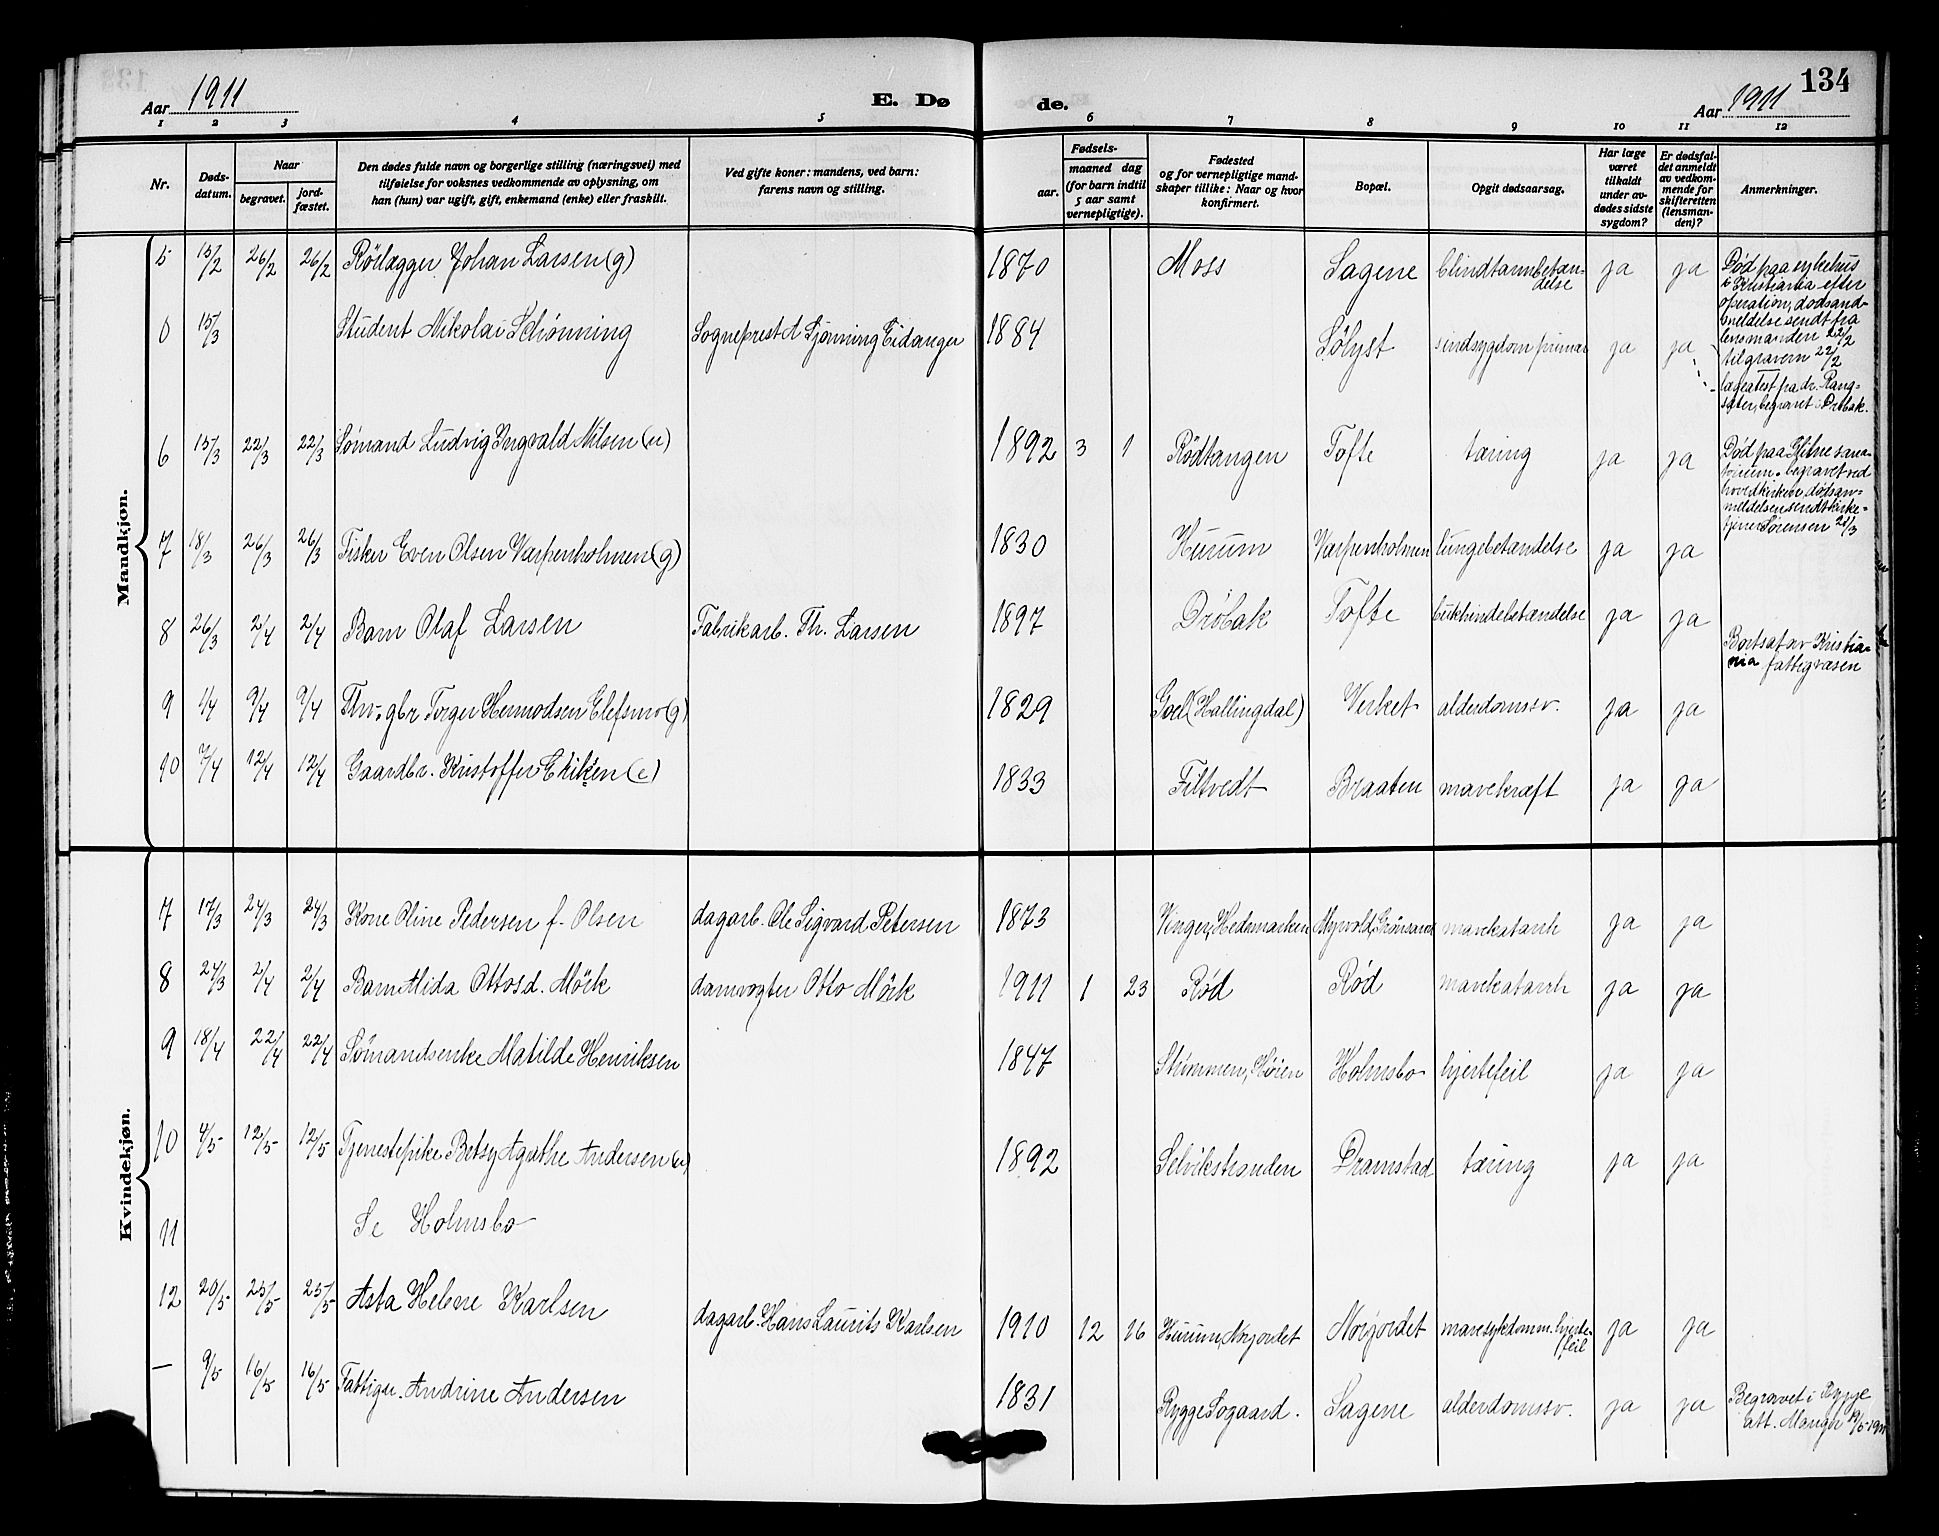 134
Aar 1911
E. Dø
de.
Aar 1911
1 2 3 4 5 6 7 8 9 10 11 12
Nr.
Døds-
datum.
Naar
begravet.
jord-
fæstet.
Den dødes fulde navn og borgerlige stilling (næringsvei) med
tilføielse for voksnes vedkommende av oplysning, om
han (hun) var ugift, gift, enkemand (enke) eller fraskilt.
Ved gifte koner: mandens, ved barn:
farens navn og stilling.
Fødsels-
aar.
maaned dag
(for barn indtil
5 aar samt
vernepligtige).
Fødested
og for vernepligtige mand-
skaper tillike: Naar og hvor
konfirmert.
Bopæl.
Opgit dødsaarsag.
Har læge
været
tilkaldt
under av-
dødes sidste
sygdom?
Er dødsfal-
det anmeldt
av vedkom-
mende for
skifteretten
(lensman-
den)?
Anmerkninger.
Mandkjøn.
5 15/2 26/2 26/2 Rörlægger Johan Larsen (g) 1870 Moss Sagene blindtarmbetæn-
delse ja ja
Død paa sykehus
i Kristiania efter
operation, dødsand-
meldelse sendt fra
lensmanden 22/2
til gravern 22/2
0 15/3 Student Nikolai Schönning Sogneprest A Sjönning Eidanger 1884 Sölyst sindsygdom primær ja ja
lægeatest fra dr. Rang-
sæter, begravet i Drøbak.
6 15/3 22/3 22/3 Sømand Ludvig Ingvald Nilsen (u) 1892 3 1 Rødtangen Tofte tæring ja ja
Død paa Glitne sana-
torium. begravet ved
hovedkirken, dødsan-
meldelsen sendt kirke-
tjener Sørensen 21/3
7 18/3 26/3 26/3 Fisker Even Olsen Værpenholmen (g) 1830 Hurum Værpenholmen lungebetændelse ja ja
8 26/3 2/4 2/4 Barn Olaf Larsen Fabrikarb. Th. Larsen 1897 Drøbak Tofte bukhindebetændelse ja ja
Bortsat av Kristia-
nia fattigvæsen
9 1/4 9/4 9/4 Fhv. gbr Torger Hermodsen Elefsmo (g) 1829 Goel (Hallingdal) Verket alderdomssv. ja ja
10 7/4 12/4 12/4 Gaardbr. Kristoffer Ekiken (e) 1833 Filtvedt Braaten mavekræft ja ja
Kvindekjøn.
7 17/3 24/3 24/3 Kone Oline Pedersen f. Olsen dagarb. Ole Sigvard Petersen 1873 Vinger, Hedemarken Myrvold, Grönsand mavekatarrh ja ja
8 24/3 2/4 2/4 Barn Alida Ottosd. Mörk damvogter Otto Mörk 1911 1 23 Rød Rød mavekatarrh ja ja
9 18/4 22/4 22/4 Sømandsenke Matilde Henriksen 1847 Strömmen, Höien Holmsbo hjertefeil ja ja
10 4/5 12/5 12/5 Tjenestepike Betsy Agathe Andersen (u) 1892 Selvikstranden Dramstad tæring ja ja
11 Se Holmsbo
12 20/5 25/5 25/5 Asta Helene Karlsen dagarb. Hans Laurits Karlsen 1910 12 16 Hurum, Norjordet Norjordet mavesykdomm. hjerte-
feil ja ja
— 9/5 16/5 16/5 Fattiger. Andrine Andersen 1831 Rygge Sogaard. Sagene alderdomssv. ja ja
Begravet i Rygge
att. Manger 19/5-1911